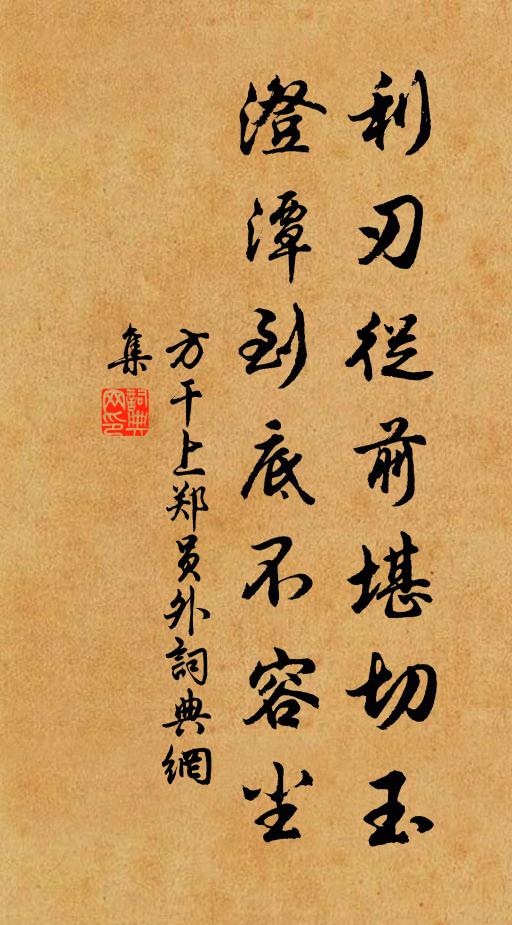 利刃從前堪切玉
澄潭到底不容尘
方干上郑员外詞典網
集
詞典
网印